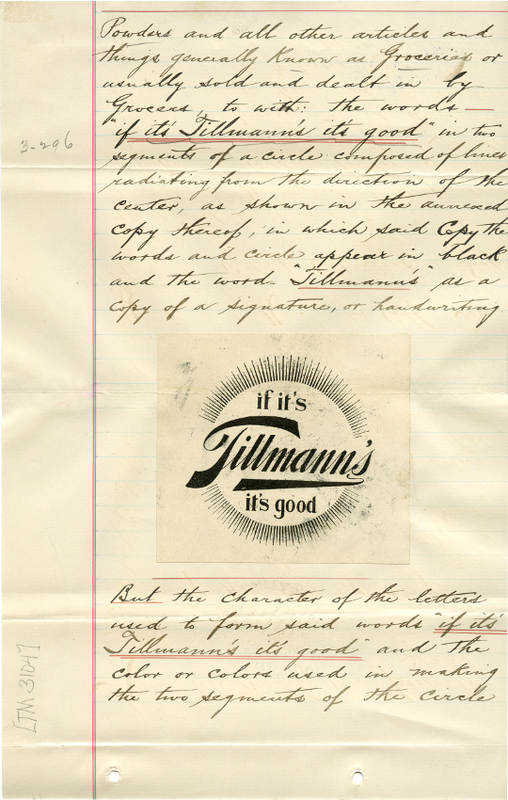 Powders and all other articles and
things generally known as Groceries or
usually sold and dealt in by
Grocers, to with: the words —
"if it's Tillmann's it's good" in two
3-296
segments of a circle composed of lines
radiating from the direction of the
center, as shown in the annexed
copy thereof, in which said Copy the
words and circle appear in black
and the word "Tillmann's" as a
copy of a signature, or handwriting.
if it's
Tillmann's
it's good
But the character of the letters
used to form said words "if it's
Tillmann's it's good" and the
color or colors used in making
the two segments of the circle
LTM 31047